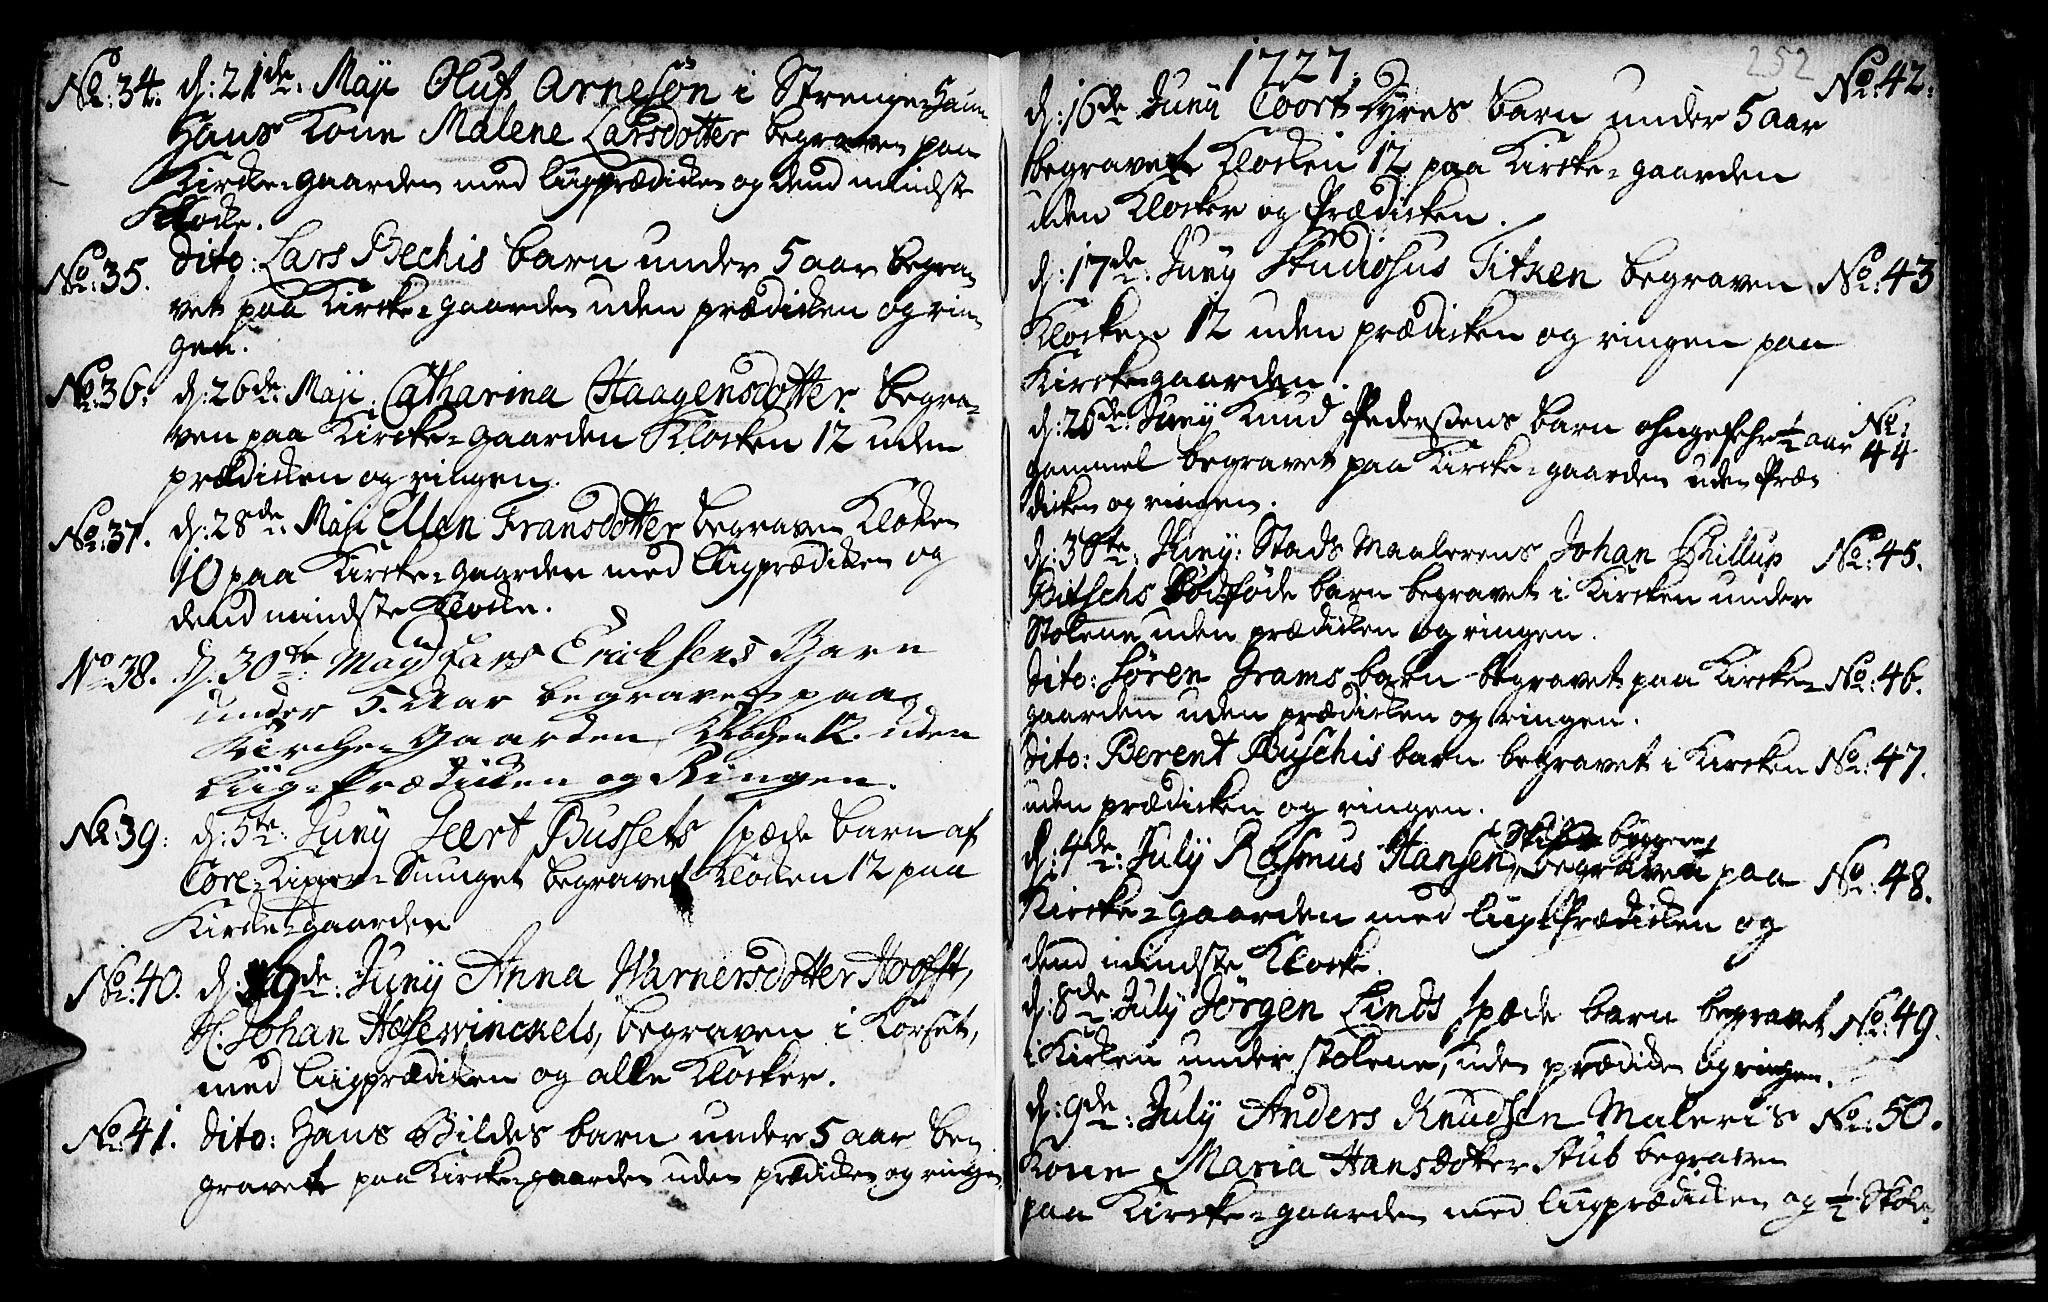 No: 34. d: 21de: Maji Oluf Arnesøn i Strenge-Haun
Hans Kone Malene Larsdotter begraven paa
Kircke-gaarden med liigprædicken og dend mindste
Klocke.
No: 35. Dito: Lars Bechis barn under 5 aar begra-
vet paa Kircke-gaarden uden prædicken og rin-
gen.
No: 36. d: 26de: Maji Catharina Haagensdotter begra-
ven paa Kircke-gaarden Klocken 12 uden
prædicken og ringen.
No: 37. d: 28de: Maji Ellen Fransdotter begraven Klocken
10 paa Kircke-gaarden med Liigprædicken og
dend mindste Klocke.
No: 38. d. 30te: Maij Lars Erichsens Barn
under 5. Aar begravet paa
Kirche-Gaarden Klochen 12. uden
Liig-Prædicken og Ringen.
No: 39: d: 5te: Juny Geert Bussets spæde barn af
begravet Klocken 12 paa
Kircke-gaarden
No: 40. d: 9de: Juny Anna Warnersdotter Hoofft,
H. Johan Hosewinckels, begraven i Korset,
med liigprædicken og alle Klocker.
No: 41. Dito: Hans Bildes barn under 5 aar be-
gravet paa Kircke-gaarden uden prædicken og ringen,
1727. 252
d: 16de Juny Coort Dyres barn under 5 aar No: 42:
begravet Klocken 12 paa Kircke-gaarden
uden Klocker og Prædicken.
d: 17de: Juny Studiosus Titken begraven No: 43
Klocken 12 uden prædicken og ringen paa
Kircke-gaarden.
d: 26de: Juny Knud Pedersens barn ohngefehr 1/2 aar No: 44
gammel begravet paa Kircke-gaarden uden Præ-
dicken og ringen.
d: 30te: Juny: Stads Maalerens Johan Phillup No: 45.
Bitschs dødføde barn begravet i Kircken under
Stolene uden prædicken og ringen.
Dito: Søren Grams barn begravet paa Kircke- No: 46.
gaarden uden prædicken og ringen.
Dito: Berent Buschis barn begravet i Kircken No: 47.
uden prædicken og ringen.
Skibbyggere
d: 4de: July Rasmus Hansen, begraven paa No: 48.
Kircke-gaarden med liig-Prædicken og
dend mindste Klocke.
d: 8de July Jørgen Linds spæde barn begravet No: 49.
i Kircken under stolene, uden prædicken og ringen.
d: 9de: July Anders Knudsen Maleris No: 50.
Kone Maria Hansdotter Stub begraven
paa Kircke-gaarden med liigprædicken og 1/2 Skole